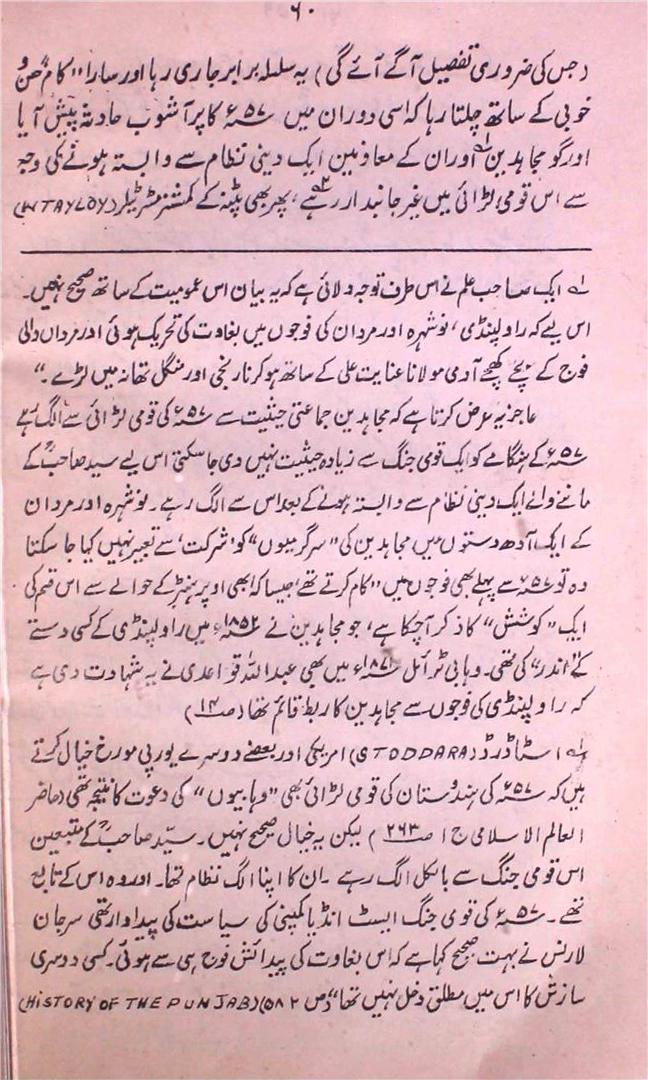 ۶۰
(جس کی ضروری تفصیل آگے آئے گی) یہ سلسلہ برابر جاری رہا اور سارا "کام" حسن و
خوبی کے ساتھ چلتا رہا کہ اسی دوران میں ۵۷ء کا پرآشوب حادثہ پیش آیا
اور گو مجاہدین اور ان کے معاونین ایک دینی نظام سے وابستہ ہونے کی وجہ
سے اس قومی لڑائی میں غیر جانبدار رہے، پھر بھی پٹنہ کے کمشنر مسٹر ٹیلر (W TAYLOY)
لہ ایک صاحب علم نے اس طرف توجہ دلائی ہے کہ یہ بیان اس عمومیت کے ساتھ صحیح نہیں۔
اس لیے کہ راولپنڈی، نوشہرہ اور مردان کی فوجوں میں بغاوت کی تحریک ہوئی اور مردان والی
فوج کے بچے کھچے آدمی مولانا عنایت علی کے ساتھ ہو کر نارنجی اور منگل تھانہ میں لڑے۔"
عاجز یہ عرض کرتا ہے کہ مجاہدین جماعتی حیثیت سے ۵۷ء کی قومی لڑائی سے الگ رہے
۵۷ء کے ہنگامے کو ایک قومی جنگ سے زیادہ حیثیت نہیں دی جا سکتی اس لیے سید صاحبؒ کے
ماننے والے ایک دینی نظام سے وابستہ ہونے کے بعد اس سے الگ رہے۔ نوشہرہ اور مردان
کے ایک آدھ دستوں میں مجاہدین کی "سرگرمیوں" کو 'شرکت' سے تعبیر نہیں کیا جا سکتا
وہ تو ۵۷ء سے پہلے بھی فوجوں میں "کام کرتے تھے" جیسا کہ ابھی اوپر ہنٹر کے حوالے سے اس قسم کی
ایک "کوشش" کا ذکر آچکا ہے، جو مجاہدین نے ۱۸۵۲ء میں راولپنڈی کے کسی دستے
کے "اندر" کی تھی۔ وہابی ٹرائل ۱۸۷۱ء میں بھی عبداللہ قواعدی نے یہ شہادت دی ہے
کہ راولپنڈی کی فوجوں سے مجاہدین کا ربط قائم تھا (ص ۱۴)
لہ اسٹاڈرڈ (STODDARA) امریکی اور بعضے دوسرے یورپی مورخ خیال کرتے
ہیں کہ ۵۷ء کی ہندوستان کی قومی لڑائی بھی "وہابیوں" کی دعوت کا نتیجہ تھی (حاضر
العالم الاسلامی ج ۱ ص ۲۶۳) لیکن یہ خیال صحیح نہیں۔ سیّد صاحبؒ کے متبعین
اس قومی جنگ سے بالکل الگ رہے۔ ان کا اپنا الگ نظام تھا۔ اور وہ اس کے تابع
تھے۔ ۵۷ء کی قومی جنگ ایسٹ انڈیا کمپنی کی سیاست کی پیداوار تھی سر جان
لارنس نے بہت صحیح کہا ہے کہ اس بغاوت کی پیدائش فوج ہی سے ہوئی۔ کسی دوسری
سازش کا اس میں مطلق دخل نہیں تھا" (ص ۵۸۲) (HISTORY OF THE PUNJAB)